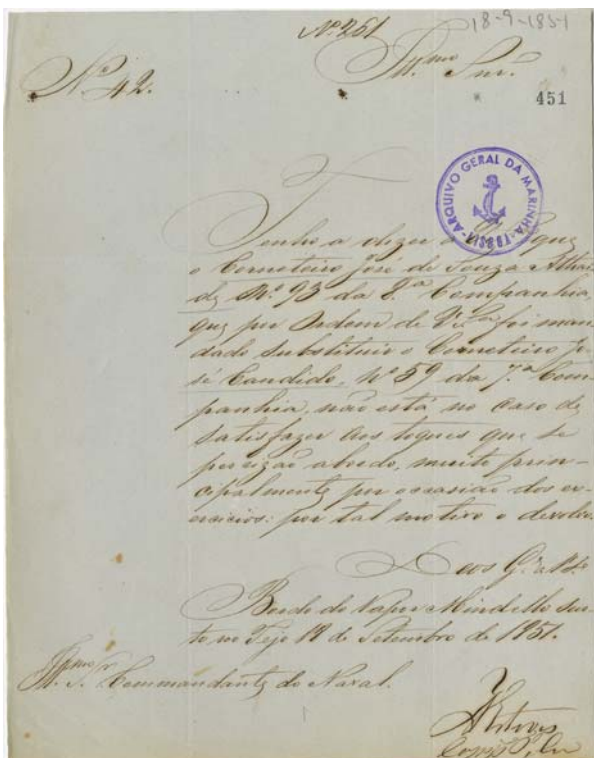 Nº 251
18-9-1851
Nº 42.
Illmo Snr.
451
ARQUIVO GERAL DA MARINHA
Tenho a dizer a que
o Corneteiro José de Souza Athai
de Nº 93 da 8.ª Companhia,
que por Ordem de V. S.ª foi man
dado substituir o Corneteiro Jo
sé Candido, Nº 59 da 7.ª Com
panhia, não está no caso de
satisfazer aos toques que se
percizão abordo, muito prin-
cipalmente por occasião dos ex
ercicios: por tal motivo o devolvo.
Deos G.e a V. S.ª
Bordo do Vapor Mindello sur
to no Tejo 18 de Setembro de 1851.
Illmo Snr. Commandante do Naval.